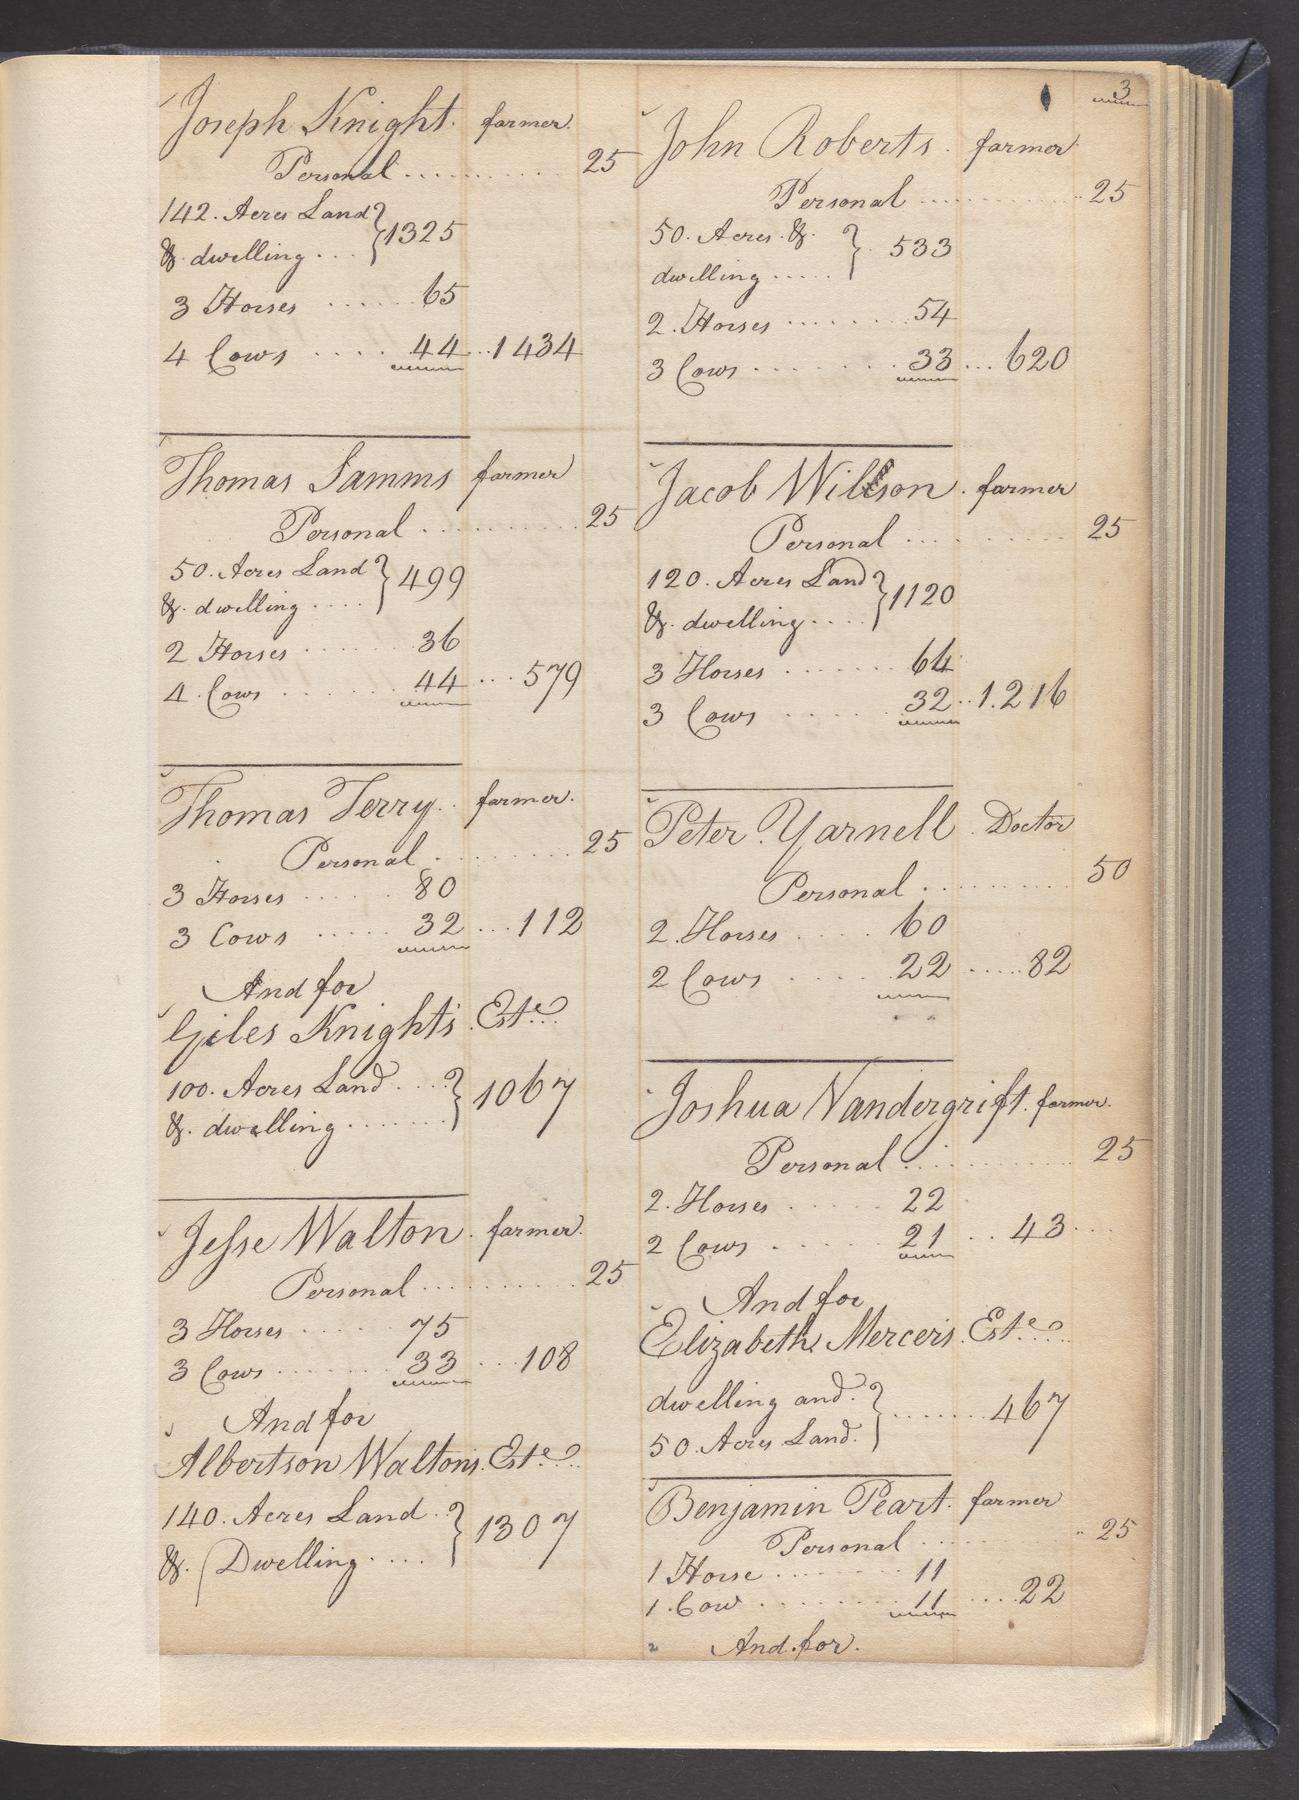 Joseph Knight. farmer.
Personal .......... 25
142. Acres Land } 1325
&. dwelling ...
3 Horses ...... 65
4 Cows .... 44 .. 1434
Thomas Samms farmer
Personal .......... 25
50. Acres Land } 499
&. dwelling ....
2 Horses ....... 36
4. Cows ...... 44 ... 579
Thomas Terry. farmer.
Personal .......... 25
3 Horses ..... 80
3 Cows ..... 32 ... 112
And for
Giles Knights Este..
100. Acres Land ... } 1067
&. dwelling .......
Jesse Walton. farmer.
Personal .......... 25
3 Horses ..... 75
3 Cows ....... 33 ... 108
And for
Albertson Waltons. Este..
140. Acres Land .. } 1307
&. Dwelling ....
3
John Roberts. farmer
Personal .......... 25
50. Acres. &. } 533
dwelling .....
2. Horses ....... 54
3 Cows ........ 33 ... 620
Jacob Willson. farmer
Personal .......... 25
120. Acres Land } 1120
&. dwelling ....
3 Horses ...... 64
3 Cows ..... 32 .. 1.216
Peter. Yarnell. Doctor
Personal .......... 50
2. Horses .... 60
2 Cows ..... 22 ..... 82
Joshua Vandergrift. farmer.
Personal .......... 25
2. Horses ..... 22
2 Cows ...... 21 .. 43 ...
And for
Elizabeth Mercers. Este..
dwelling and. } ....... 467
50. Acres Land.
Benjamin Peart. farmer
Personal .......... 25
1 Horse ....... 11
1. Cow ........ 11 .... 22
And. for.